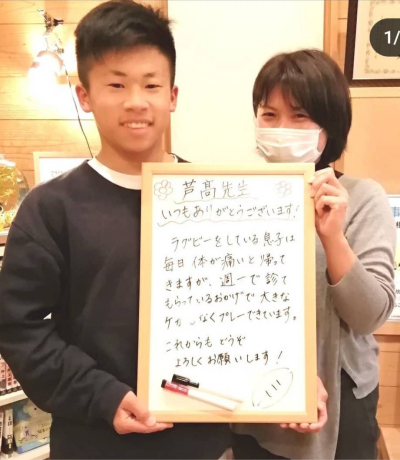 1/
芦髙先生
いつもありがとうございます!
ラグビーをしている息子は
毎日体が痛いと帰って
きますが、週一で診て
もらっているおかげで大きな
ケガなくプレーできています。
これからもどうぞ
よろしくお願いします!